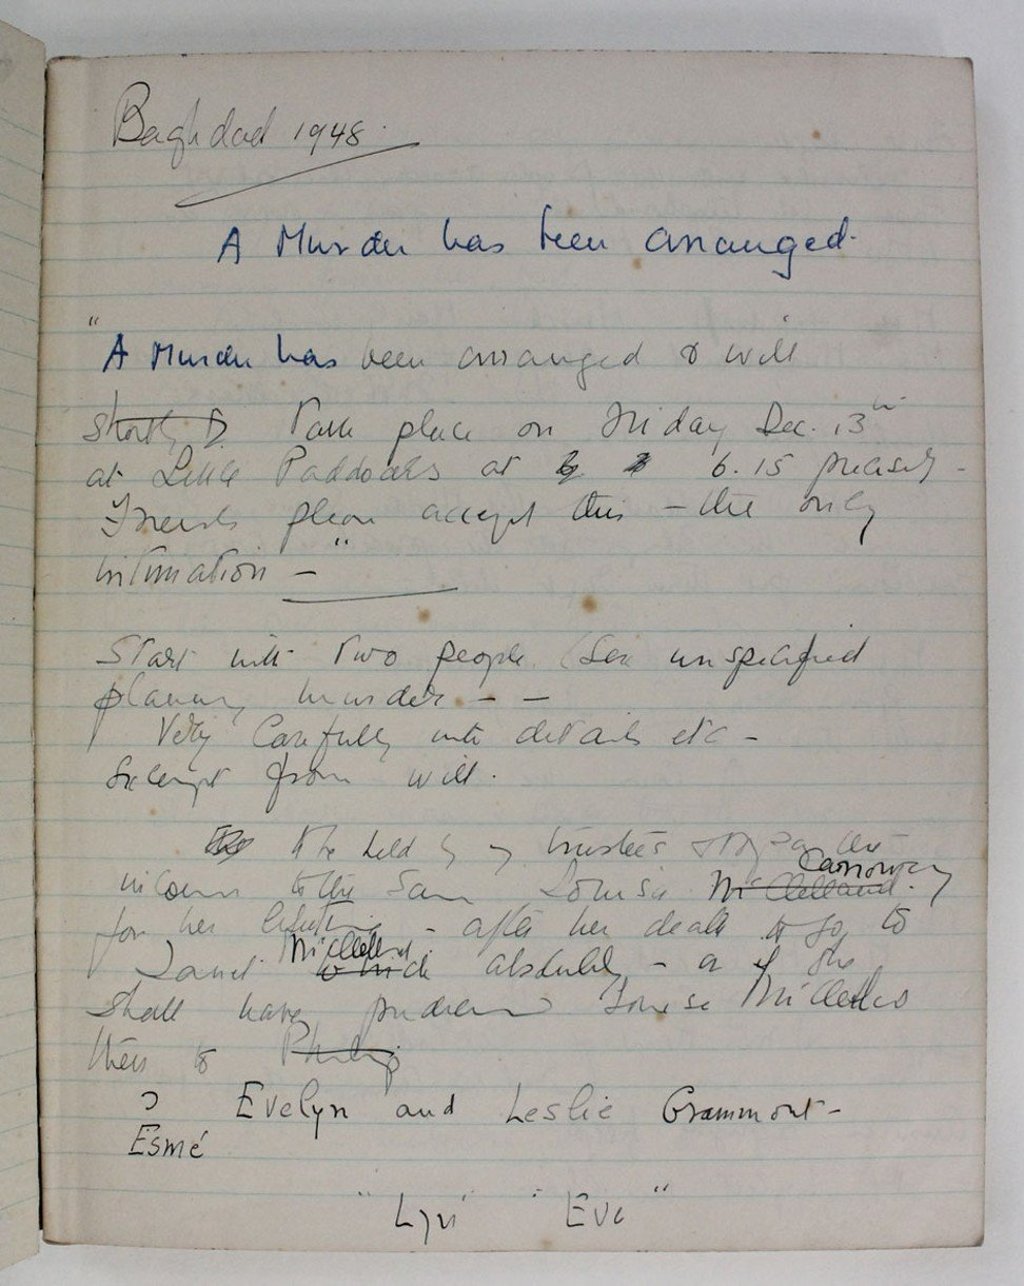 Baghdad 1948.
A Murder has been arranged.
"A Murder has been arranged & will
shortly take place on Friday Dec. 13th
at Little Paddocks at 6.15 precisely -
Friends please accept this - the only
intimation - "
Start with two people (Sex unspecified
planning murder - -
Very Carefully into details etc -
Excerpt from will.
To be held by my trustees
income to the Louisa McClelland. Carroway
for her lifetime - after her death to go to
Janet McClelland absolutely - or if she
shall have
then to Philip
? Evelyn and Leslie Grammont -
Esmé
"Lyn" "Eve"